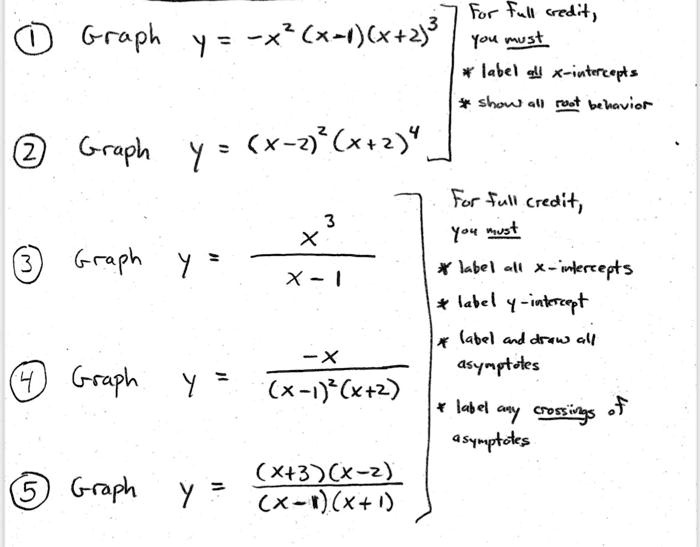 ① Graph y = -x² (x-1)(x+2)³
For full credit,
you must
* label all x-intercepts
* show all root behavior
② Graph y = (x-2)² (x+2)⁴
For full credit,
you must
* label all x-intercepts
* label y-intercept
* label and draw all
asymptotes
* label any crossings of
asymptotes
③ Graph y = x³ / x-1
④ Graph y = -x / (x-1)² (x+2)
⑤ Graph y = (x+3)(x-2) / (x-1)(x+1)